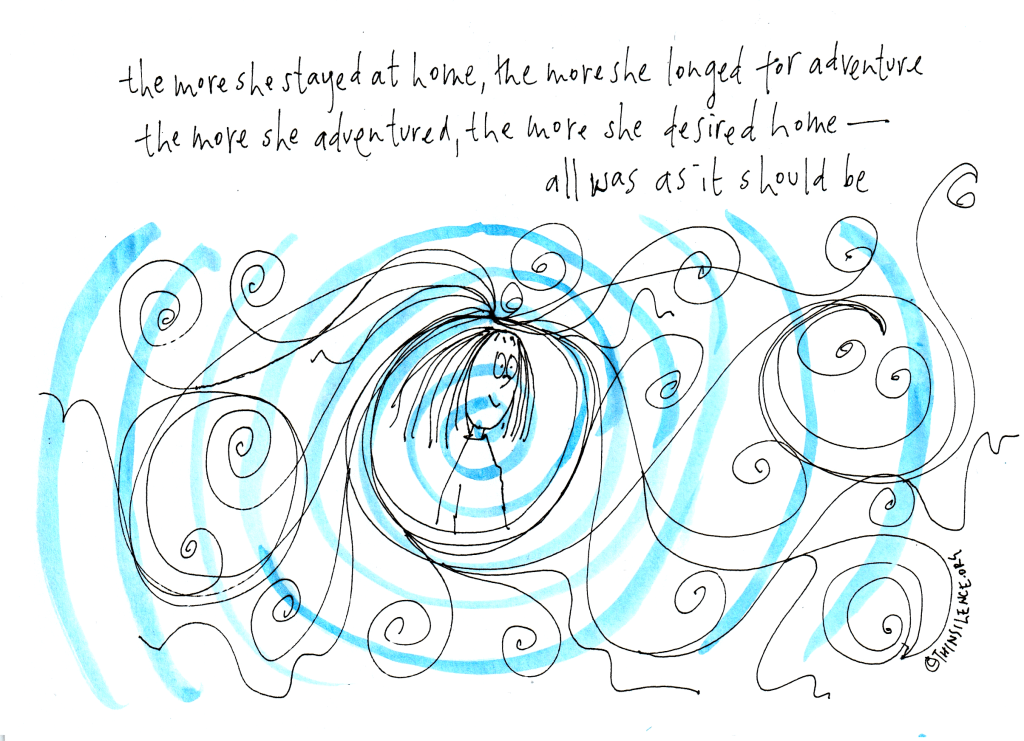 the more she stayed at home, the more she longed for adventure
the more she adventured, the more she desired home —
all was as it should be
©THINSILENCE.ORG